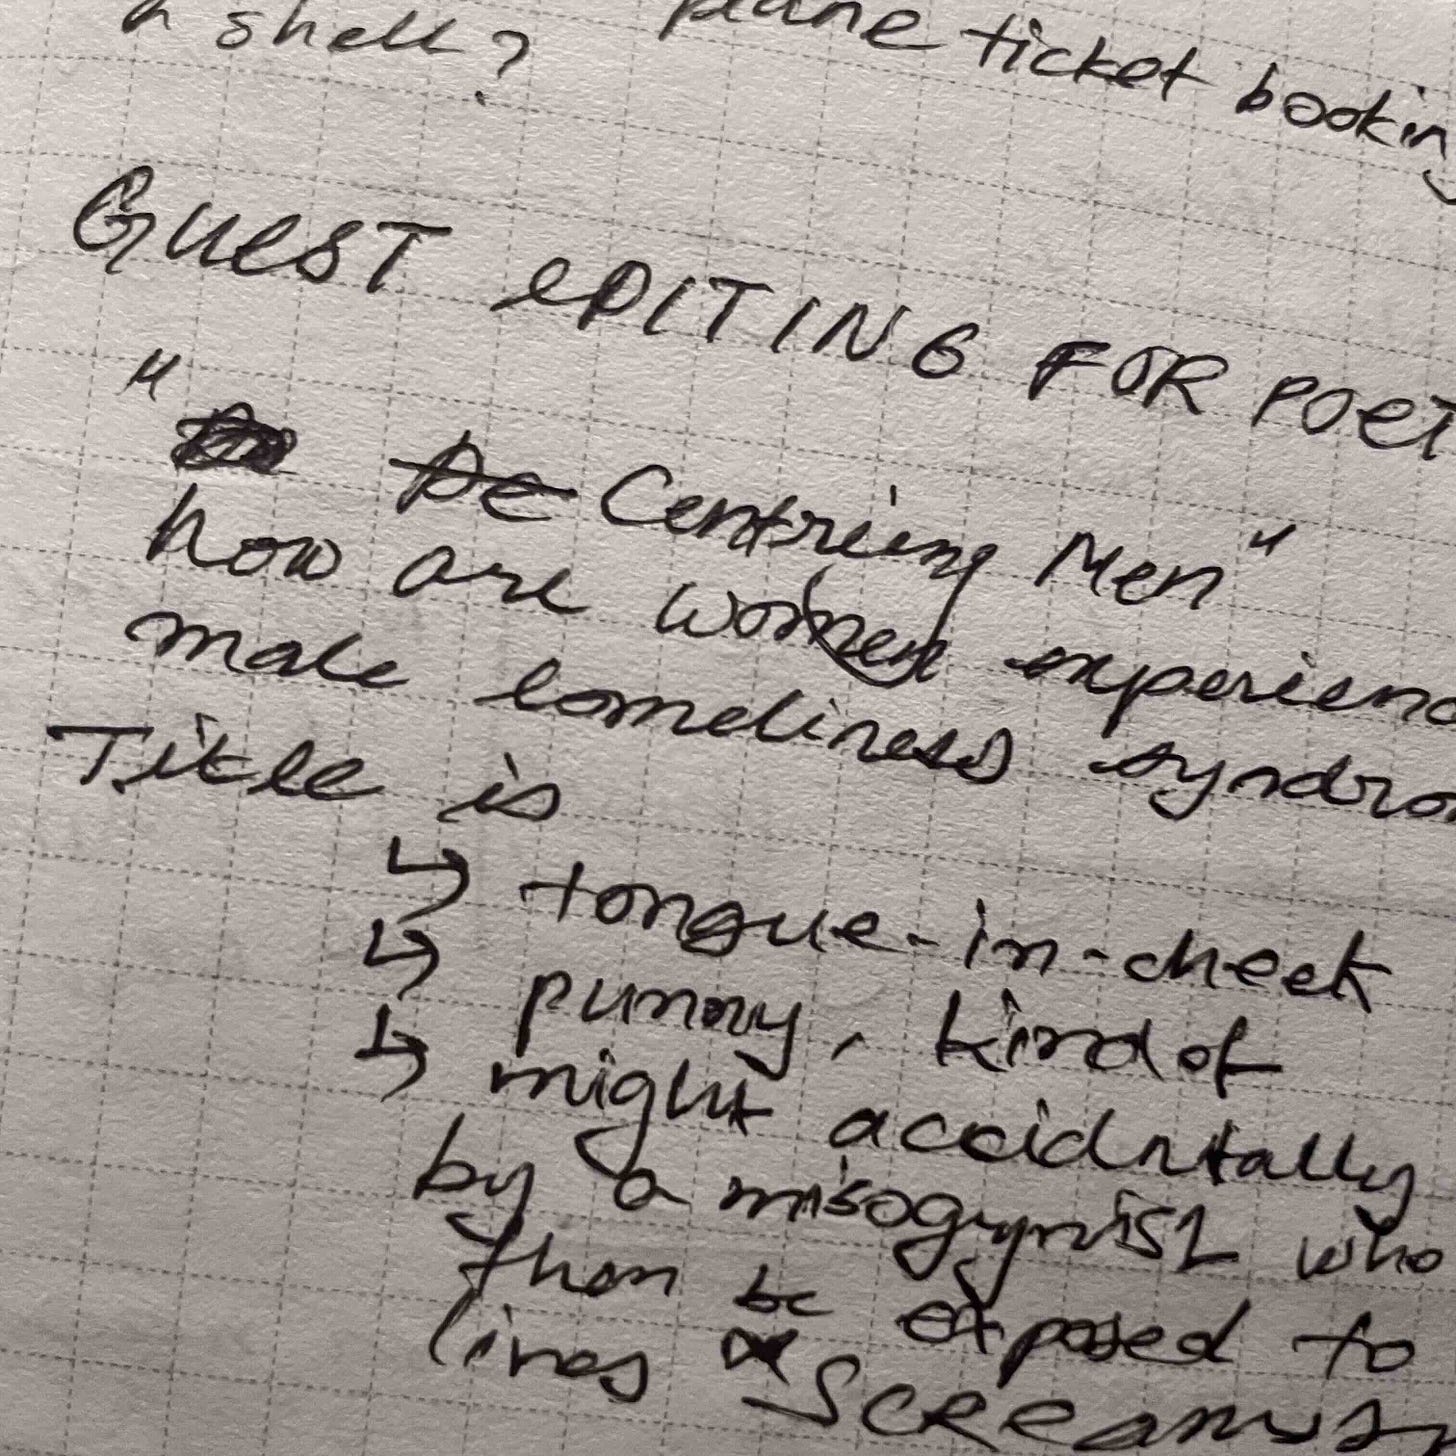 a shell? plane ticket bookin
GUEST EDITING FOR POET
"De Centring Men"
how are women experienc
male loneliness syndro
Title is
↳ tongue-in-cheek
↳ punny, kind of
↳ might accidntally
by a misogynist who
then be exposed to
lines